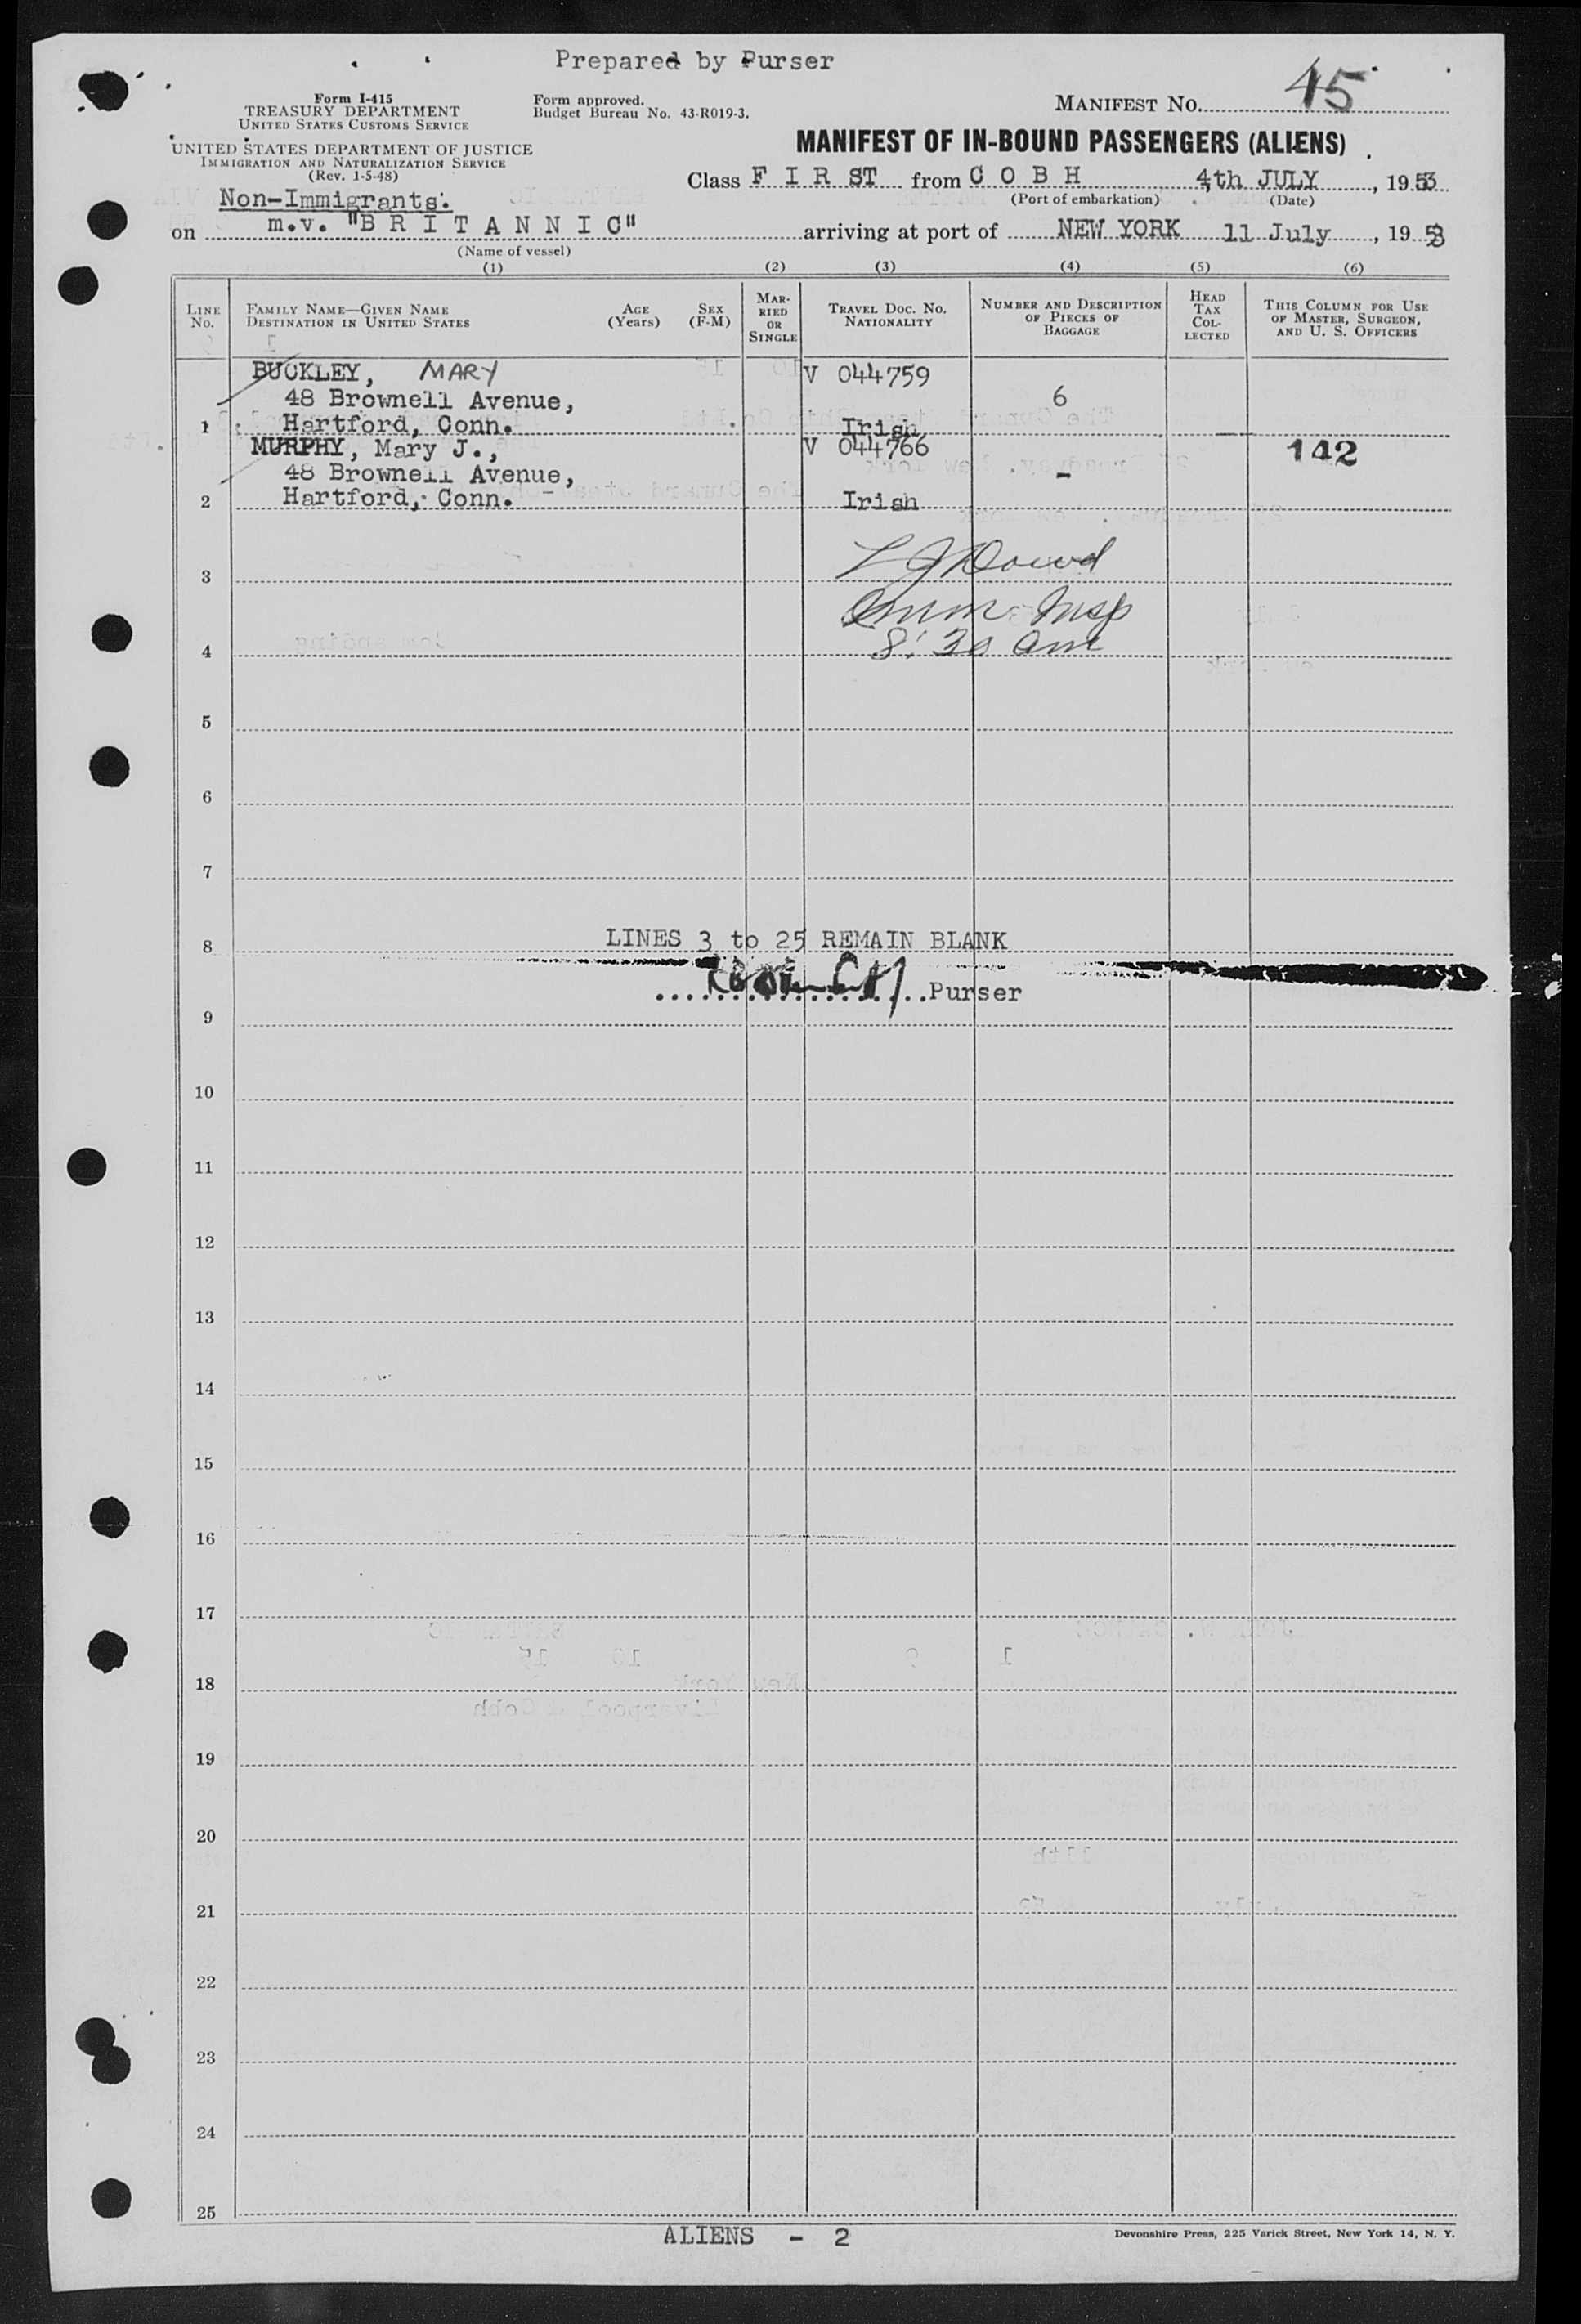 Prepared by Purser
Form I-415
TREASURY DEPARTMENT
UNITED STATES CUSTOMS SERVICE
UNITED STATES DEPARTMENT OF JUSTICE
IMMIGRATION AND NATURALIZATION SERVICE
(Rev. 1-5-48)
Form approved.
Budget Bureau No. 43-R019-3.
MANIFEST NO. 45
MANIFEST OF IN-BOUND PASSENGERS (ALIENS)
Class F I R ST from C O B H 4th JULY, 1953
(Port of embarkation) (Date)
Non-Immigrants:
on m.v. "B R I T A N N I C" arriving at port of NEW YORK 11 July, 1953
(Name of vessel)
(1) (2) (3) (4) (5) (6)
LINE No.
FAMILY NAME—GIVEN NAME
DESTINATION IN UNITED STATES
AGE (Years)
SEX (F-M)
MARRIED OR SINGLE
TRAVEL DOC. NO. NATIONALITY
NUMBER AND DESCRIPTION OF PIECES OF BAGGAGE
HEAD TAX COLLECTED
THIS COLUMN FOR USE OF MASTER, SURGEON, AND U. S. OFFICERS
BUCKLEY, MARY V 044759
48 Brownell Avenue, 6
1 Hartford, Conn. Irish
MURPHY, Mary J., V 044766 142
48 Brownell Avenue, -
2 Hartford, Conn. Irish
3 Dowd
Imm Insp
4 8:30 am
5
6
7
8 LINES 3 to 25 REMAIN BLANK
Purser
9
10
11
12
13
14
15
16
17
18
19
20
21
22
23
24
25
ALIENS - 2
Devonshire Press, 225 Varick Street, New York 14, N. Y.